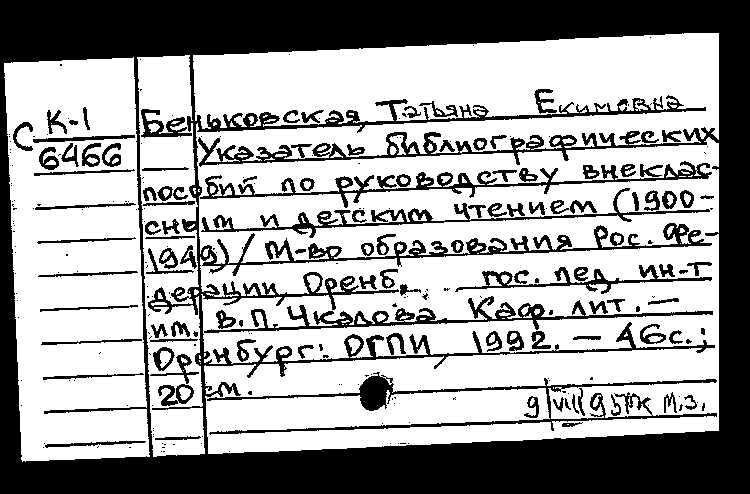 С К-1
6466
Беньковская, Татьяна Екимовна
Указатель библиографических
пособий по руководству внеклас-
сным и детским чтением (1900-
1949) / М-во образования Рос. Фе-
дерации, Оренб. гос. пед. ин-т
им. В.П. Чкалова. Каф. лит. —
Оренбург: ОГПИ, 1992. — 46с.;
20 см.
9/VIII 95 М.З.